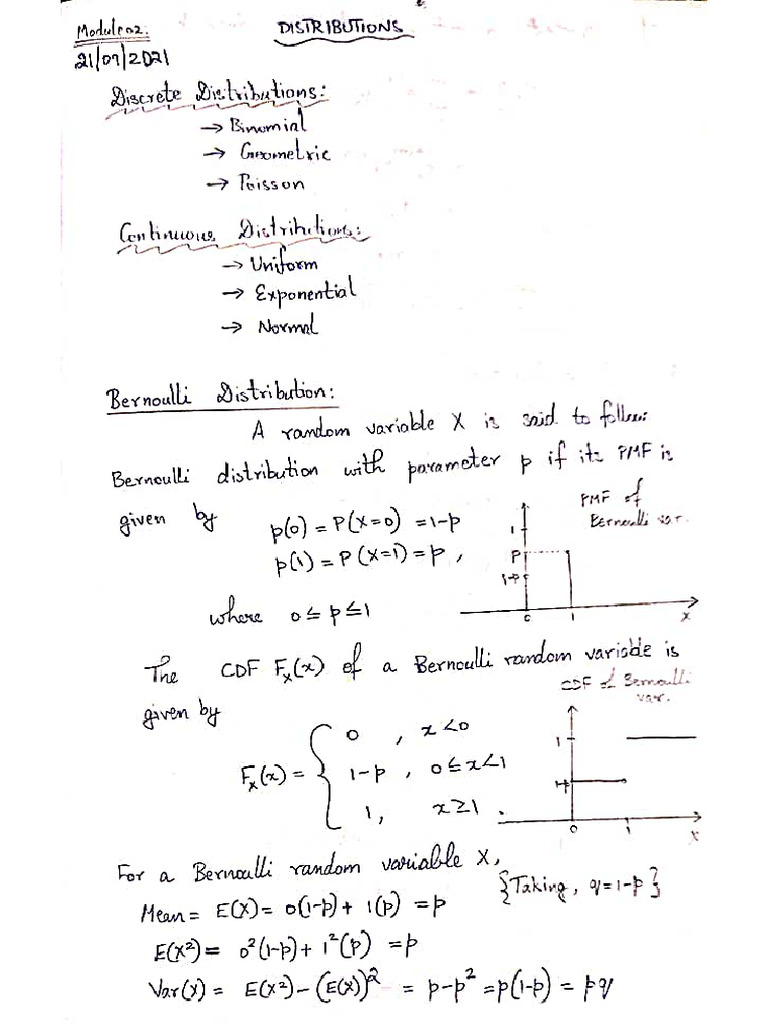 Module 02.
DISTRIBUTIONS
21/09/2021
Discrete Distributions:
→ Binomial
→ Geometric
→ Poisson
Continuous Distributions:
→ Uniform
→ Exponential
→ Normal
Bernoulli Distribution:
A random variable X is said to follow
Bernoulli distribution with parameter p if its PMF is
given by
p(0) = P(X=0) = 1-p
p(1) = P(X=1) = p,
where 0 ≤ p ≤ 1
PMF of
Bernoulli var.
1
P
1-p
0 1 x
The CDF Fₓ(x) of a Bernoulli random variable is
given by
CDF of Bernoulli
var.
Fₓ(x) = { 0, x<0
1-p, 0≤x<1
1, x≥1.
1
0 1 x
For a Bernoulli random variable X,
{Taking, q=1-p}
Mean = E(X) = 0(1-p) + 1(p) = p
E(X²) = 0²(1-p) + 1²(p) = p
Var(X) = E(X²) - (E(X))² = p-p² = p(1-p) = pq